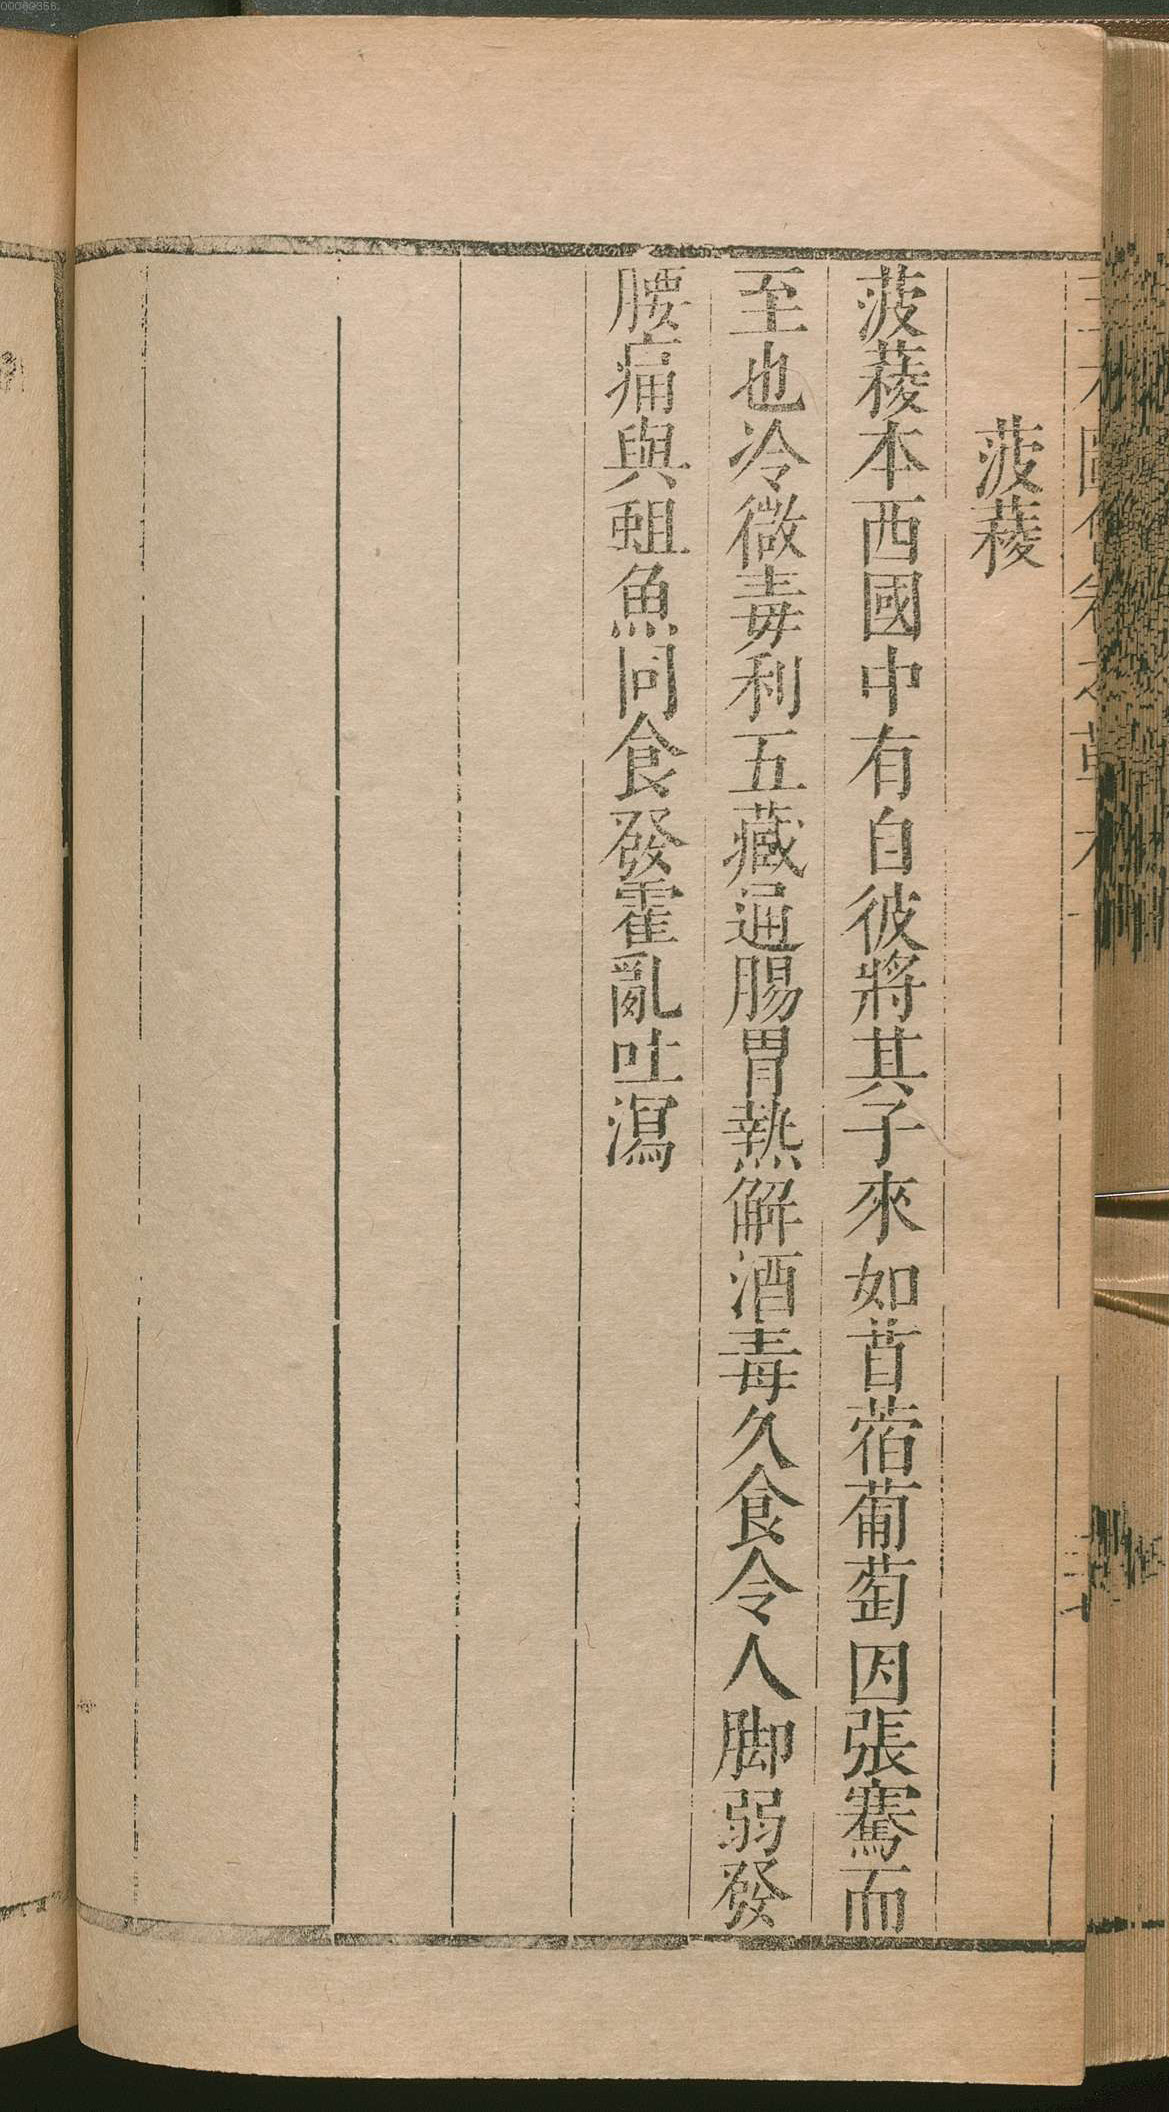 菠薐
菠薐本西國中有自彼將其子來如苜蓿葡萄因張騫而
至也冷微毒利五藏通腸胃熱解酒毒久食令人脚弱發
腰痛與䱇魚同食發霍亂吐瀉
00069358